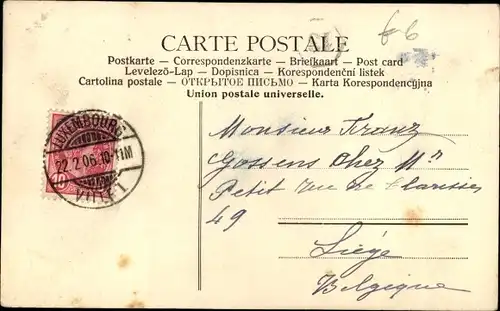 £6
CARTE POSTALE
Postkarte — Correspondenzkarte — Briefkaart — Post card
Levelező-Lap — Dopisnica — Korespondenční listek
Cartolina postale — ОТКРЫТОЕ ПИСЬМО — Karta Korespondencyjna
Union postale universelle.
LUXEMBOURG
22.2.06.10-11M
VILLE
10
Monsieur Franz
Gossens Chez Mr
Petit rue de Clarisses
49
Liége
Belgique